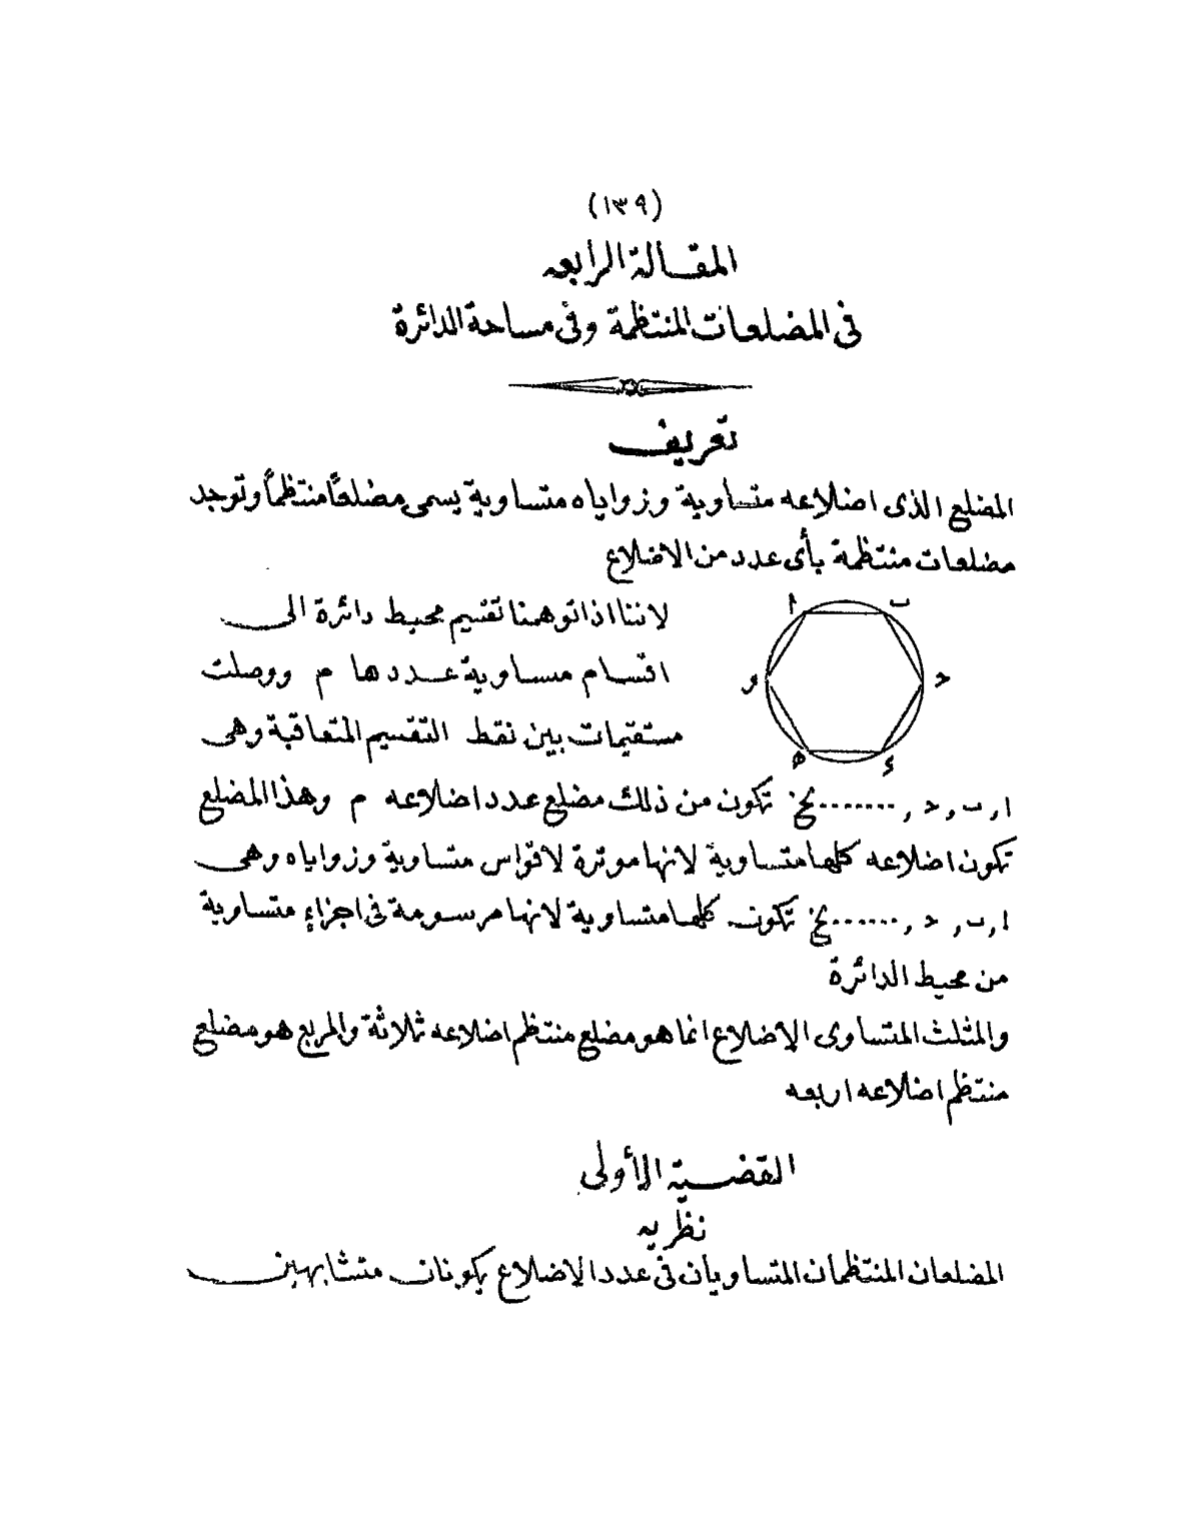 (١٣٩)
المقالة الرابعه
فى المضلعات المنتظمة وفى مساحة الدائرة
تعريف
المضلع الذى اضلاعه متساوية وزواياه متساوية يسمى مضلعاً منتظماً وتوجد
مضلعات منتظمة بأى عدد من الاضلاع
ا ب
لاننا اذا توهمنا تقسيم محيط دائرة الى
و حـ
اقسام مساوية عددها م ووصلت
مستقيمات بين نقط التقسيم المتعاقبة وهى
ه ء
ا , ب , حـ , ....... لخ تكون من ذلك مضلع عدد اضلاعه م وهذا المضلع
تكون اضلاعه كلها متساوية لانها موترة لاقواس متساوية وزواياه وهى
ا , ب , حـ , ....... لخ تكون كلها متساوية لانها مرسومة فى اجزاء متساوية
من محيط الدائرة
والمثلث المتساوى الاضلاع انما هو مضلع منتظم اضلاعه ثلاثة والمربع هو مضلع
منتظم اضلاعه اربعه
القضية الأولى
نظريه
المضلعان المنتظمان المتساويان فى عدد الاضلاع يكونان متشابهين